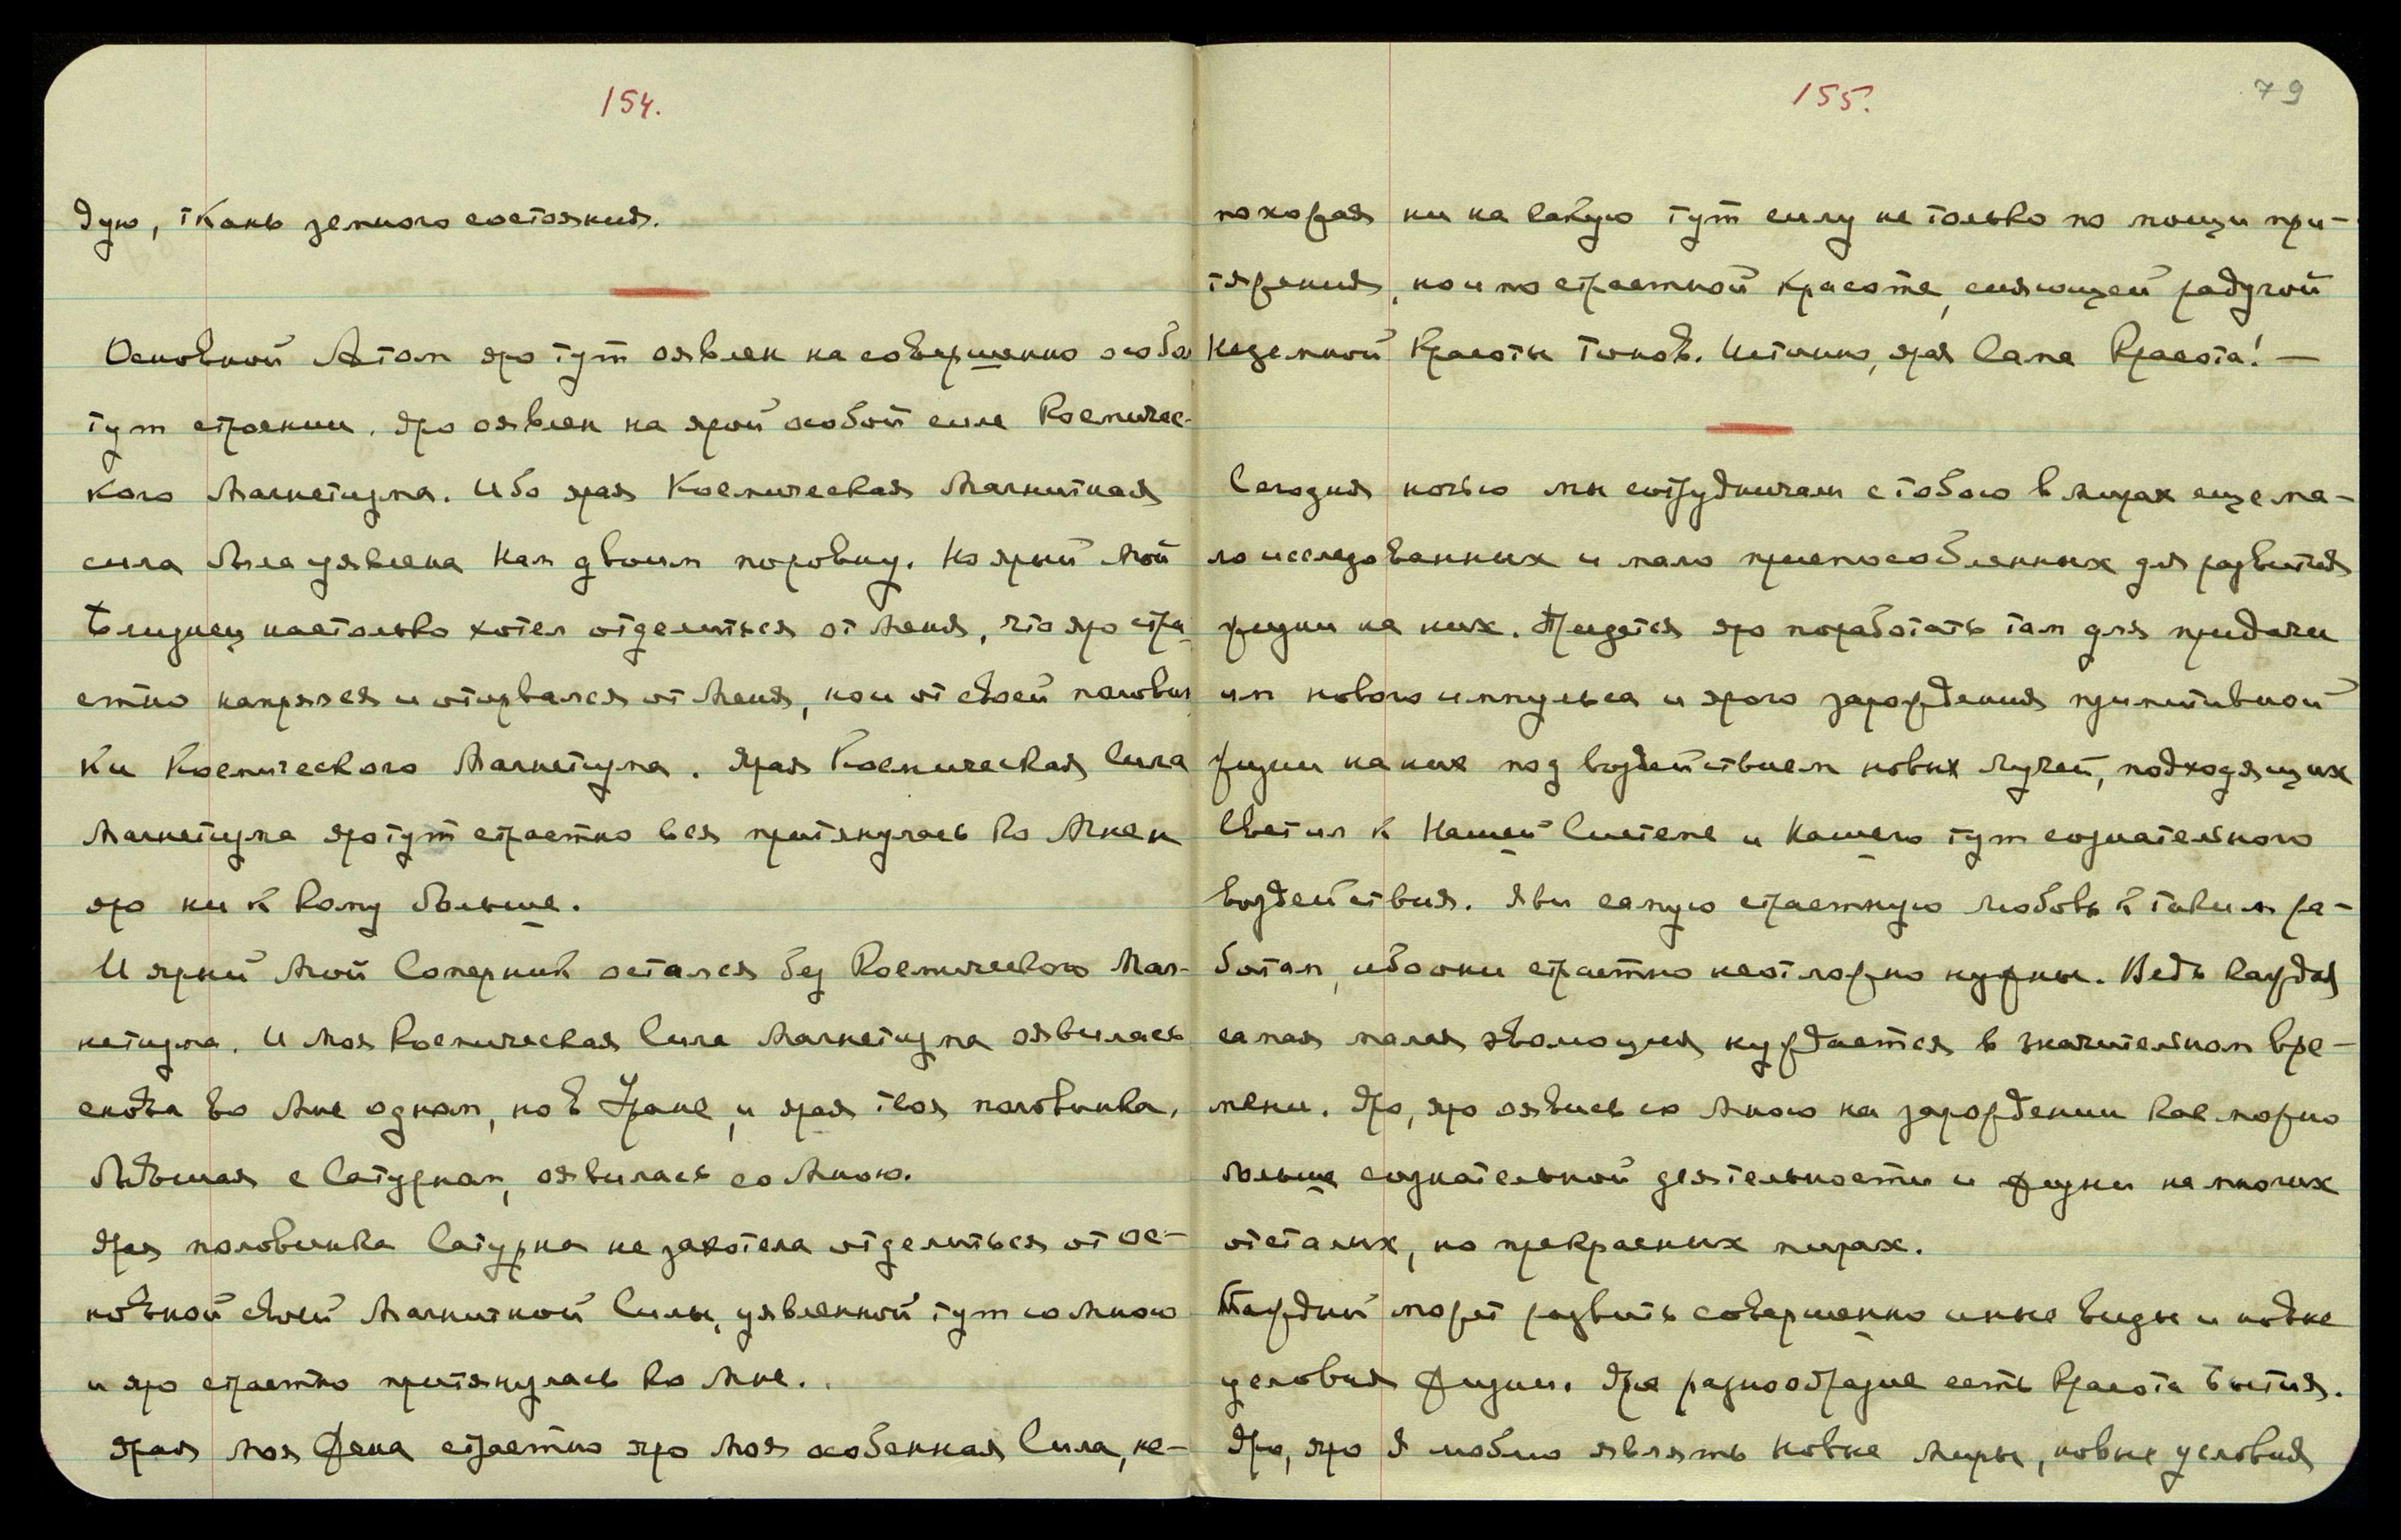 154.
дую, ткань земного состояния.
Основной Атом яро тут оявлен на совершенно особо
тут строении. Яро оявлен на ярой особой силе Космичес-
кого Магнетизма. Ибо ярая Космическая Магнитная
сила была уявлена Нам двоим поровну. Но ярый Мой
Близнец настолько хотел отделиться от Меня, что яро стра-
стно напрягся и оторвался от Меня, но и от своей половин
ки Космического Магнетизма. Ярая Космическая Сила
Магнетизма яро тут страстно вся притянулась ко Мне и
яро ни к кому больше.
И ярый Мой Соперник остался без Космического Маг-
нетизма. И Моя Космическая Сила Магнетизма оявилась
снова во Мне одном, но в Уране, и ярая твоя половинка,
бывшая с Сатурном, оявилась со Мною.
Ярая половинка Сатурна не захотела отделиться от ос-
новной своей Магнитной Силы, уявленной тут со Мною
и яро страстно притянулась ко Мне.
Ярая Моя Жена страстно яро Моя особенная Сила, не-
155. 79
похожая ни на какую тут силу не только по мощи при-
тяжения, но и по страстной красоте, сияющей радугой
неземной Красоты тонов. Истинно, ярая Сама Красота! —
Сегодня ночью мы сотрудничали с тобою в мирах еще ма-
ло исследованных и мало приспособленных для развития
жизни на них. Придется яро поработать там для придачи
им нового импульса и ярого зарождения примитивной
жизни на них под воздействием новых лучей, подходящих
Светил к Нашей Системе и Нашего тут сознательного
воздействия. Яви самую страстную любовь к таким ра-
ботам, ибо они страстно неотложно нужны. Ведь каждая
самая малая эволюция нуждается в значительном вре-
мени. Яро, яро оявись со Мною на зарождении как можно
больше сознательной деятельности и жизни на многих
отсталых, но прекрасных мирах.
Каждый может развить совершенно иные виды и новые
условия жизни. Ярое разнообразие есть Красота Бытия.
Яро, яро Я люблю являть новые Миры, новые условия